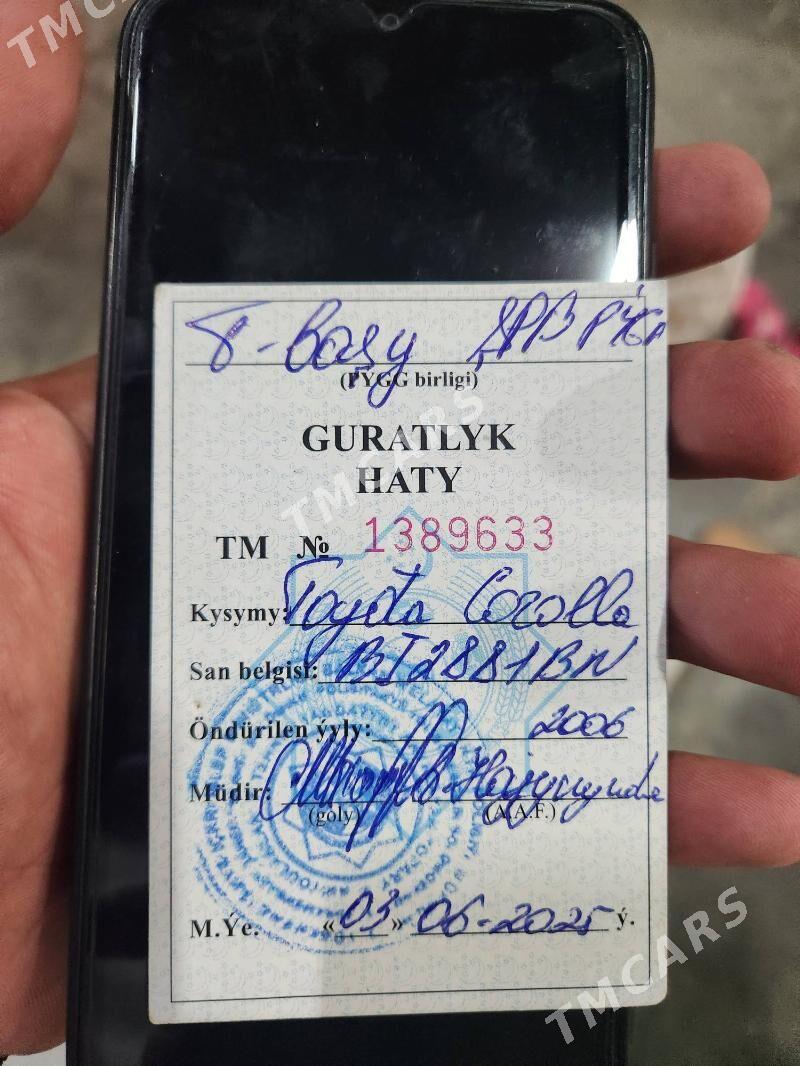 TMCARS
T-başy ŞPB PÝGG
(PYGG birligi)
GURATLYK
HATY
TMCARS
TM № 1389633
Kysymy: Toyota Corolla
San belgisi: BI2881BN
Öndürilen ýyly: 2006
Müdir:
(goly) (A.A.F.)
M.Ýe. «03» 06-2025 ý.
TMCARS